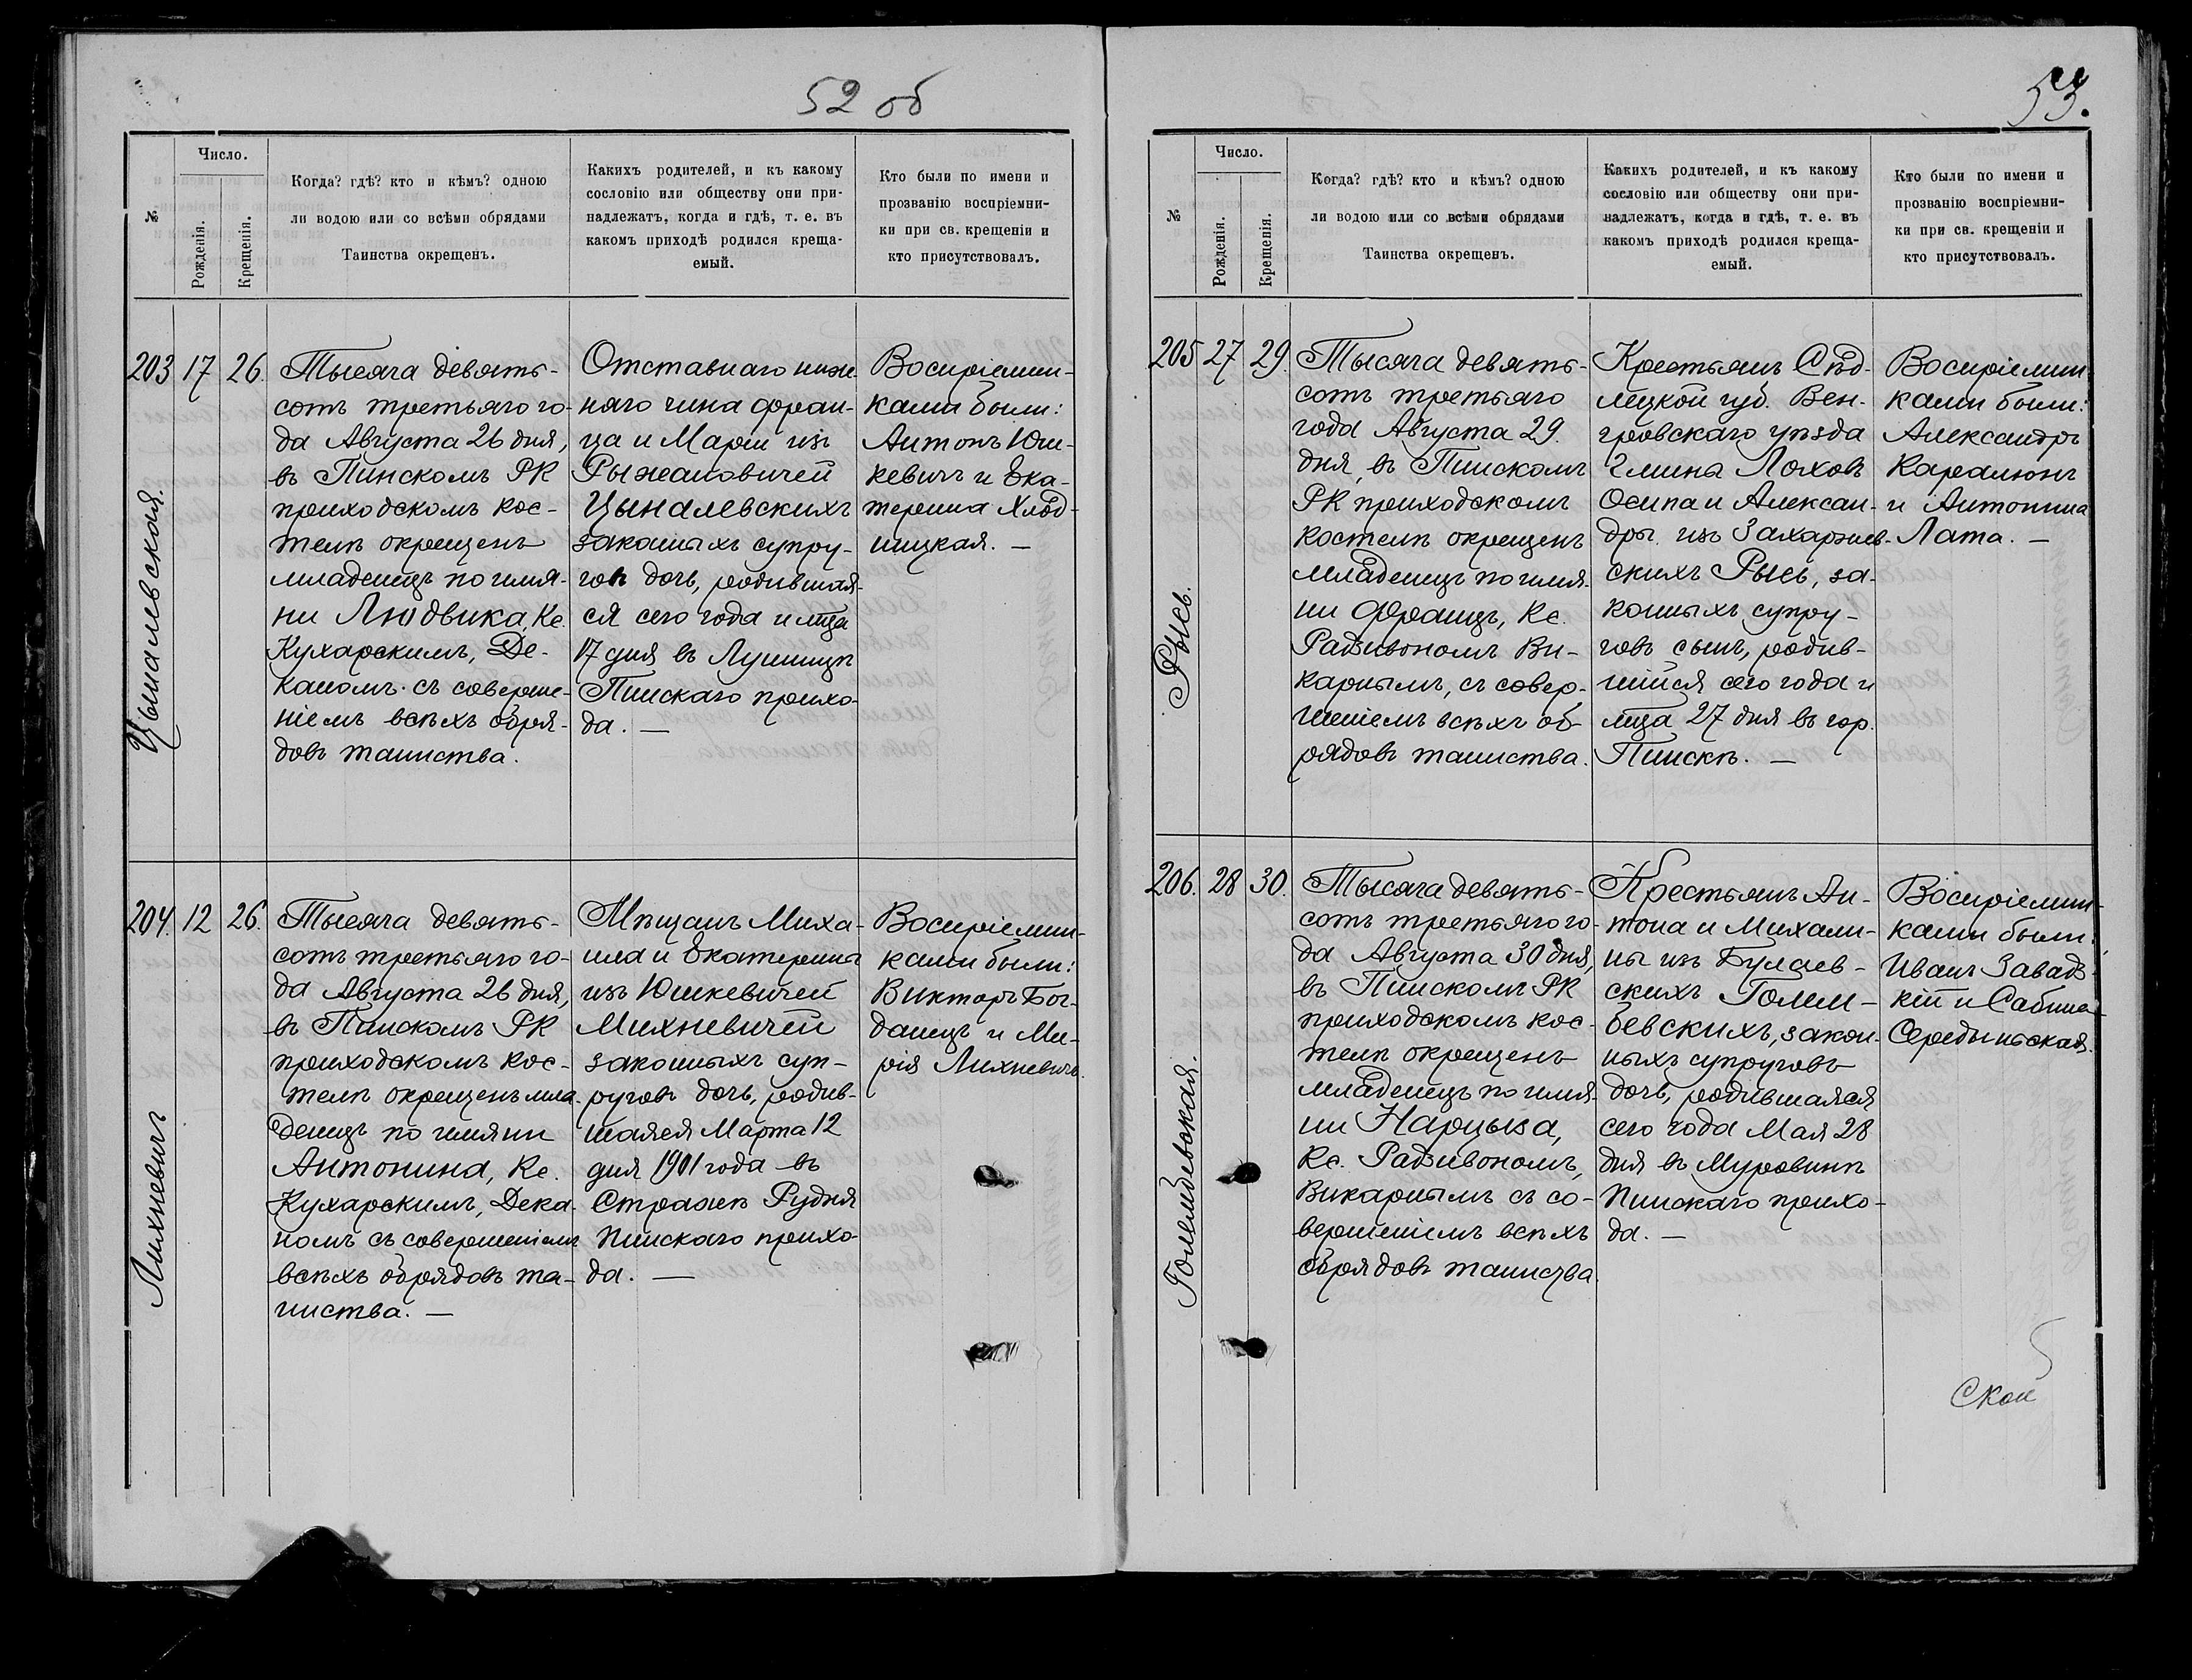 52 об
№
Число.
Рожденія.
Крещенія.
Когда? гдѣ? кто и кѣмъ? одною
ли водою или со всѣми обрядами
Таинства окрещенъ.
Какихъ родителей, и къ какому
сословію или обществу они при-
надлежатъ, когда и гдѣ, т. е. въ
какомъ приходѣ родился креща-
емый.
Кто были по имени и
прозванію воспріемни-
ки при св. крещеніи и
кто присутствовалъ.
Цыналевская.
203 17 26.
Тысяча девять-
сотъ третьяго го-
да Августа 26 дня,
въ Пинскомъ РК
приходскомъ кос-
телѣ окрещенъ
младенецъ по имя-
ни Людвика, Кс.
Кухарскимъ, Де-
каномъ съ соверше-
ніемъ всѣхъ обря-
довъ таинства.
Отставнаго ниж-
няго чина Фран-
ца и Маріи изъ
Рыжановичей
Цыналевскихъ
законныхъ супру-
говъ дочь, родившая-
ся сего года и мца
17 дня въ Лунинцѣ
Пинскаго прихо-
да. —
Воспріемни-
ками были:
Антонъ Юш-
кевичъ и Ека-
терина Хлод-
ницкая. —
Лихневичъ
204. 12 26.
Тысяча девять-
сотъ третьяго го-
да Августа 26 дня,
въ Пинскомъ РК
приходскомъ кос-
телѣ окрещенъ мла-
денецъ по имяни
Антонина, Кс.
Кухарскимъ, Дека-
номъ съ совершеніемъ
всѣхъ обрядовъ та-
инства. —
Мѣщанъ Миха-
ила и Екатерины
изъ Юшкевичей
Михневичей
законныхъ суп-
руговъ дочь, родив-
шаяся Марта 12
дня 1901 года въ
Рудня
Пинскаго прихо-
да. —
Воспріемни-
ками были:
Викторъ Бог-
данецъ и Ма-
рія Лихневичъ.
53.
№
Число.
Рожденія.
Крещенія.
Когда? гдѣ? кто и кѣмъ? одною
ли водою или со всѣми обрядами
Таинства окрещенъ.
Какихъ родителей, и къ какому
сословію или обществу они при-
надлежатъ, когда и гдѣ, т. е. въ
какомъ приходѣ родился креща-
емый.
Кто были по имени и
прозванію воспріемни-
ки при св. крещеніи и
кто присутствовалъ.
Рысь.
205 27 29.
Тысяча девять-
сотъ третьяго
года Августа 29.
дня, въ Пинскомъ
РК приходскомъ
костелѣ окрещенъ
младенецъ по имя-
ни Францъ, Кс.
Радзивономъ Ви-
карнымъ, съ совер-
шеніемъ всѣхъ об-
рядовъ таинства.
Крестьянъ Сѣд-
лецкой губ. Вен-
гровскаго уѣзда
гмина Лоховъ
Осипа и Алексан-
дры изъ Захаржев-
скихъ Рысь, за-
конныхъ супру-
говъ сынъ, родив-
шійся сего года и
мца 27 дня въ гор.
Пинскѣ. —
Воспріемни-
ками были:
Александръ
Кардлюнъ
и Антонина
Лата. —
Голембевская.
206. 28 30.
Тысяча девять-
сотъ третьяго го-
да Августа 30 дня,
въ Пинскомъ РК
приходскомъ кос-
телѣ окрещенъ
младенецъ по имя-
ни Нарциза,
Кс. Радзивономъ,
Викарнымъ съ со-
вершеніемъ всѣхъ
обрядовъ таинства.
Крестьянъ Ан-
тона и Михали-
ны изъ Булаев-
скихъ Голем-
бевскихъ, закон-
ныхъ супруговъ
дочь, родившаяся
сего года Мая 28
дня въ Муровинѣ
Пинскаго прихо-
да. —
Воспріемни-
ками были:
Иванъ Завадз-
кій и Сабина
Серединская.